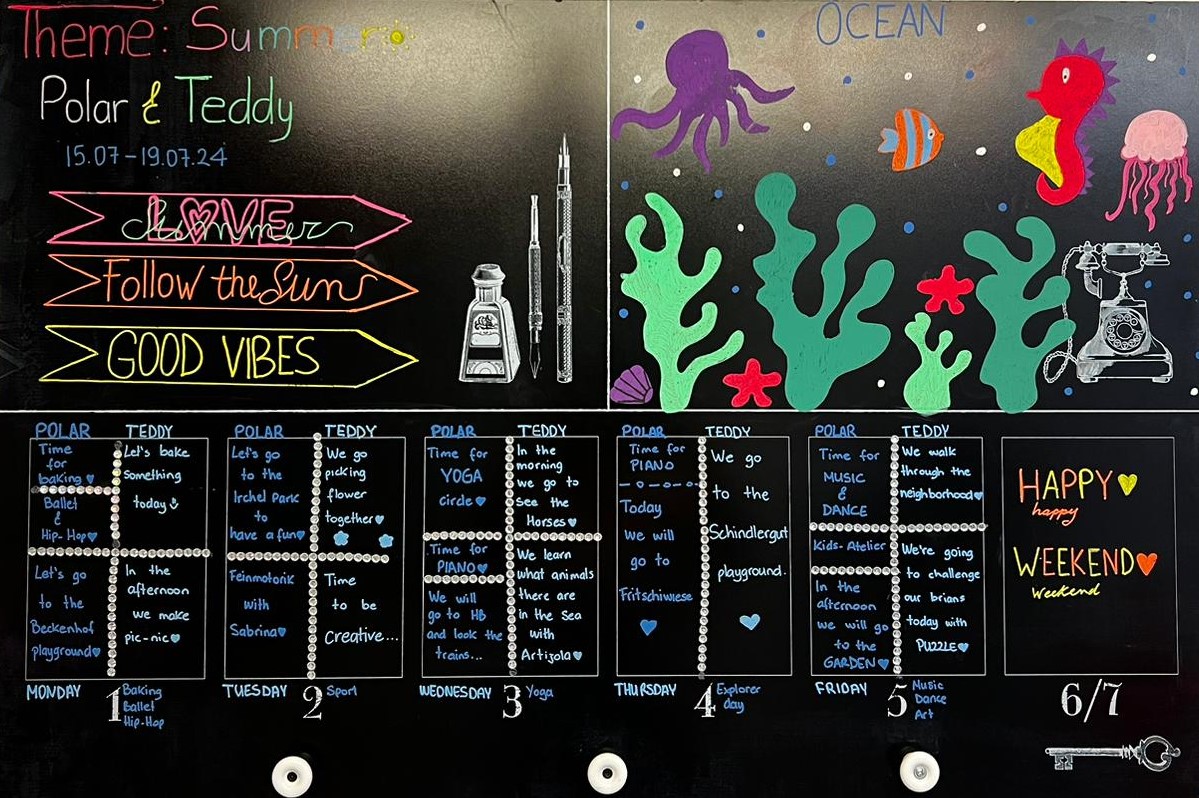 Theme: Summer
Polar & Teddy
15.07-19.07.24
LOVE
Summer
Follow the Sun
GOOD VIBES
OCEAN
POLAR
Time
for
baking
Ballet
&
Hip-Hop
Let's go
to the
Beckenhof
playground
TEDDY
Let's bake
something
today
In the
afternoon
we make
pic-nic
MONDAY 1
Baking
Ballet
Hip-Hop
POLAR
Let's go
to the
Irchel Park
to
have a fun
Feinmotorik
with
Sabrina
TEDDY
We go
picking
flower
together
Time
to be
Creative...
TUESDAY 2 Sport
POLAR
Time for
YOGA
circle
Time for
PIANO
We will
go to HB
and look the
trains...
TEDDY
In the
morning
we go to
see the
Horses
We learn
what animals
there are
in the Sea
with
Artizola
WEDNESDAY 3 Yoga
POLAR
Time for
PIANO
Today
We will
go to
Fritschiwiese
TEDDY
We go
to the
Schindlergut
playground.
THURSDAY 4
Explorer
day
POLAR
Time for
MUSIC
&
DANCE
Kids-Atelier
In the
afternoon
we will go
to the
GARDEN
TEDDY
We walk
through the
neighborhood
We're going
to challenge
our brians
today with
PUZZLE
FRIDAY 5
Music
Dance
Art
HAPPY
happy
WEEKEND
Weekend
6/7